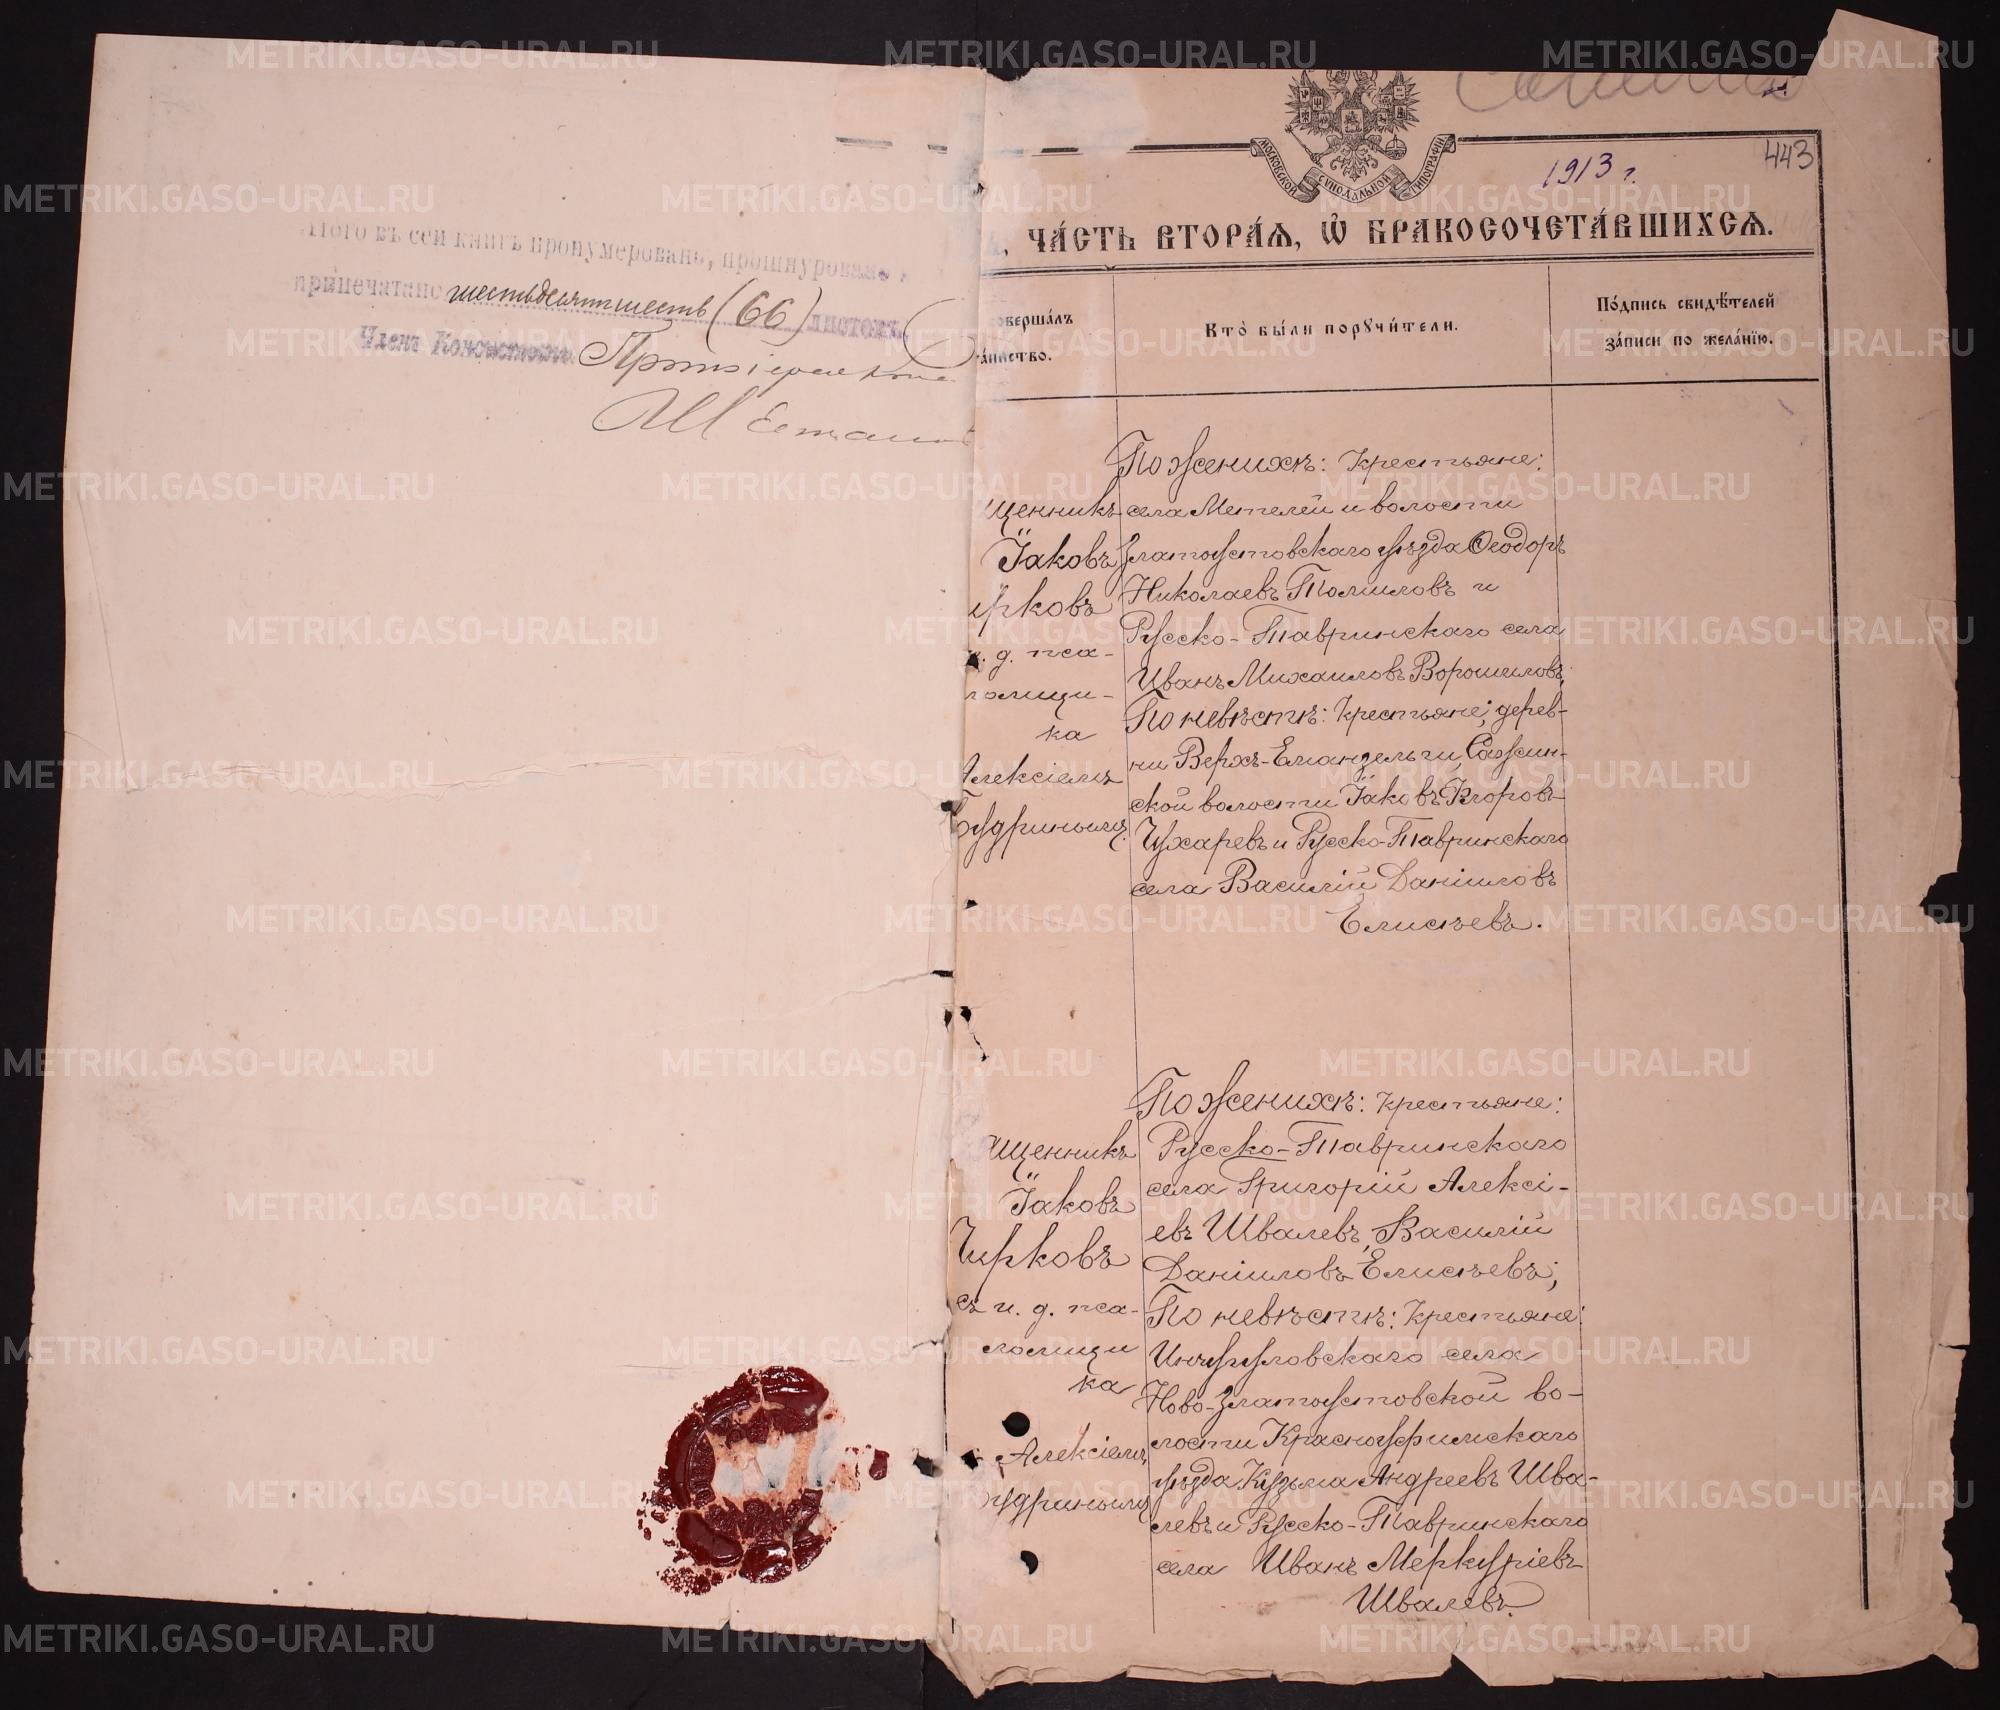 Итого въ сей книгѣ пронумеровано, прошнуровано и
припечатано шестьдесятъ шесть (66) листовъ
Членъ Консисторіи Протоіерей
1913 г.
443
МОСКОВСКОЙ СѴНОДАЛЬНОЙ ТИПОГРАФІИ
ЧА́СТЬ ВТОРА́Ѧ, Ѽ БРАКОСОЧЕТА́ВШИХСѦ.
совершалъ
таинство.
Кто̀ бы́ли порꙋчи́тели.
По́дпись свидѣ́телей
за́писи по жела́нїю.
щенникъ
Іаковъ
ирковъ
и. д. пса-
ломщи-
ка
Алексіемъ
Будринымъ.
По женихѣ: крестьяне:
села Метелей и волости
Златоустовскаго уѣзда Ѳеодоръ
Николаевъ Томиловъ и
Русско-Тавринскаго села
Иванъ Михаиловъ Ворошиловъ;
По невѣстѣ: крестьяне; дерев-
ни Верхъ-Емандельги, Сажин-
ской волости Іаковъ Егоровъ
Чухаревъ и Русско-Тавринскаго
села Василій Даніиловъ
Елисѣевъ.
щенникъ
Іаковъ
Чирковъ
съ и. д. пса-
ломщи
ка
Алексіемъ
удринымъ
По женихѣ: крестьяне:
Русско-Тавринскаго
села Григорій Алексі-
евъ Швалевъ, Василій
Даніиловъ Елисѣевъ;
По невѣстѣ: крестьяне:
села
Ново-Златоустовской во-
лости Красноуфимскаго
уѣзда Кузьма Андреевъ Шва-
левъ и Русско-Тавринскаго
села Иванъ Меркуріевъ
Швалевъ.
METRIKI.GASO-URAL.RU